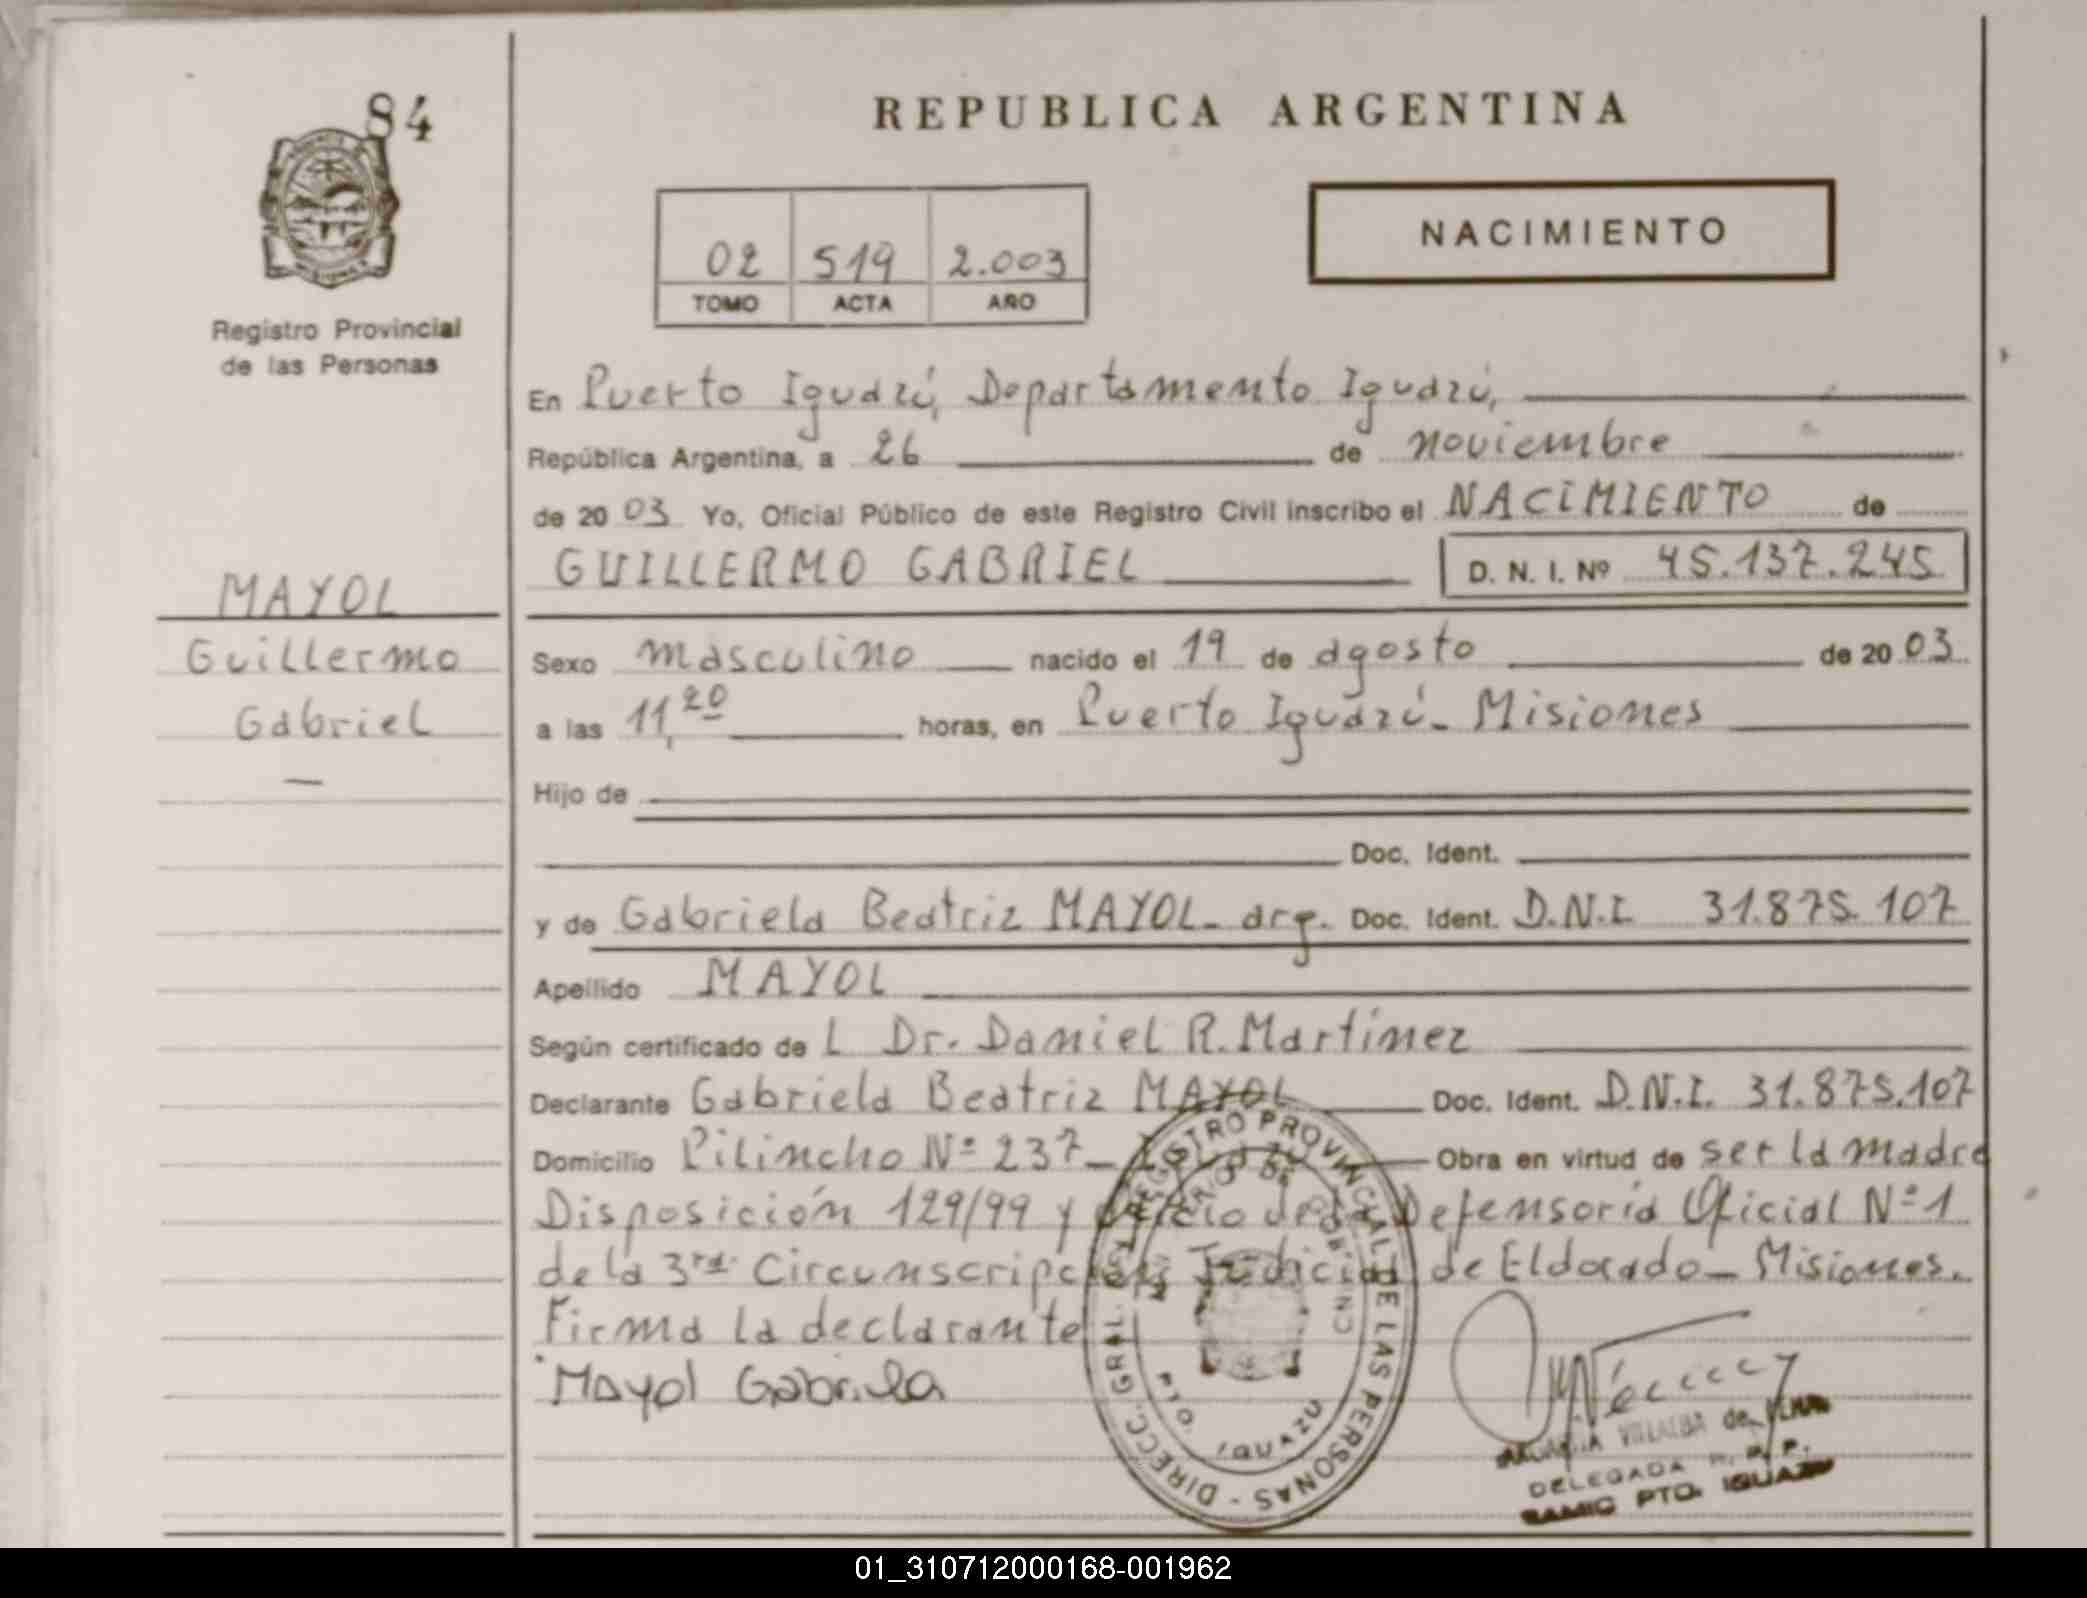 84
REPUBLICA ARGENTINA
NACIMIENTO
02 519 2.003
TOMO ACTA AÑO
Registro Provincial
de las Personas
En Puerto Iguazú, Departamento Iguazú,
República Argentina, a 26 de noviembre
de 2003 Yo, Oficial Público de este Registro Civil inscribo el NACIMIENTO de
GUILLERMO GABRIEL D. N. I. Nº 45.137.245
MAYOL
Guillermo
Gabriel
Sexo masculino nacido el 19 de agosto de 2003
a las 11,20 horas, en Puerto Iguazú - Misiones
Hijo de
Doc. Ident.
y de Gabriela Beatriz MAYOL - arg. Doc. Ident. D.N.I. 31.875.107
Apellido MAYOL
Según certificado de L Dr. Daniel R. Martínez
Declarante Gabriela Beatriz MAYOL Doc. Ident. D.N.I. 31.875.107
Domicilio Pilincho Nº 237 - Obra en virtud de ser la madre
Disposición 129/99 y oficio de la Defensoría Oficial Nº 1
de la 3ra. Circunscripción Judicial de Eldorado - Misiones.
Firma la declarante
Mayol Gabriela
DIRECC. GRAL. REGISTRO PROVINCIAL DE LAS PERSONAS
PTO. IGUAZU
VILLALBA de
DELEGADA R. P. P.
SAMIC PTO. IGUAZU
01_310712000168-001962